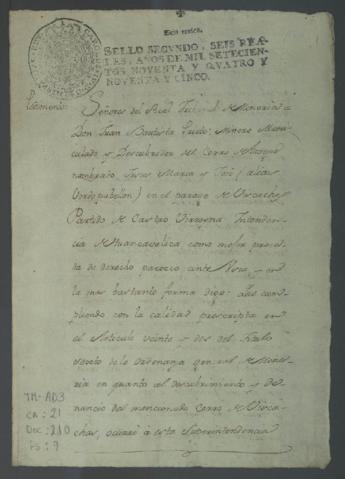 Seis reales.
SELLO SEGVNDO, SEIS REA-
LES, AÑOS DE MIL SETECIEN-
TOS NOVENTA Y QVATRO Y
NOVENTA Y CINCO.
Señores del Real Tribunal de Mineria
Don Juan Bautista Minero Matri-
culado y Descubridor del Cerro de Azogue
nombrado Jesus Maria y Jose (alias
) en el parage de
Partido de Castro Virreyna Intenden-
cia de Huancavelica como mejor proce-
da de derecho paresco ante V.S. y en
la mas bastante forma digo: que cum-
pliendo con la calidad prescripta en
el Articulo veinte y dos del Titulo
sexto de la ordenanza general de Mine-
ria en quanto al descubrimiento y de-
nuncio del mencionado Cerro de
chas, ocurri á esta Superintendencia
TM-AD3
CA: 21
Doc: 210
Fs: 9